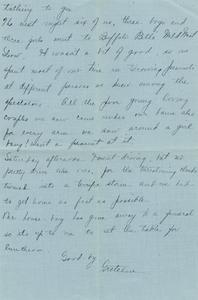 talking to you
The next night six of us, three boys and
three girls went to Buffalo Bills Wild West
Show. It wasn't a bit of good, so we
spent most of our time in throwing peanuts
at different persons we knew among the
spectators. All the fine young loving
couples we now came under our
for every arm we saw around a girl
they'd want a peanut at it.
Saturday afternoon I went driving, but no
pretty drive like ours, for the threatening clouds
turned into a storm and we had
to get home as fast as possible.
Our house-boy has gone away to a funeral
so its up to me to set the table for
luncheon
Good by